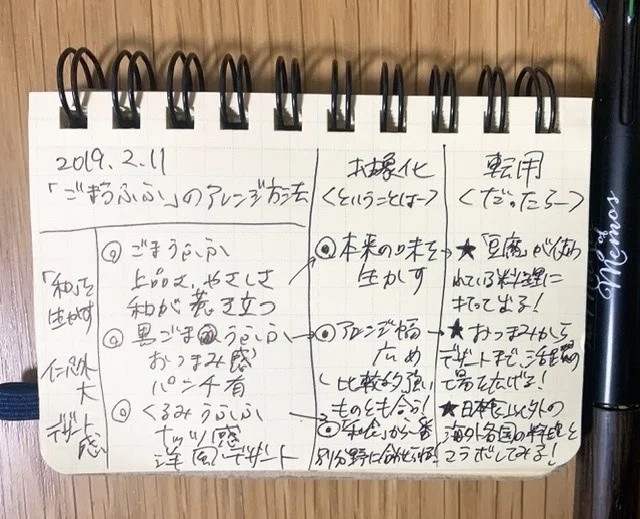 2019.2.11
「ごまうふふ」のアレンジ方法
「和」を
生かす
大
デザート
感
◎ごまうふふ
上品さ、やさしさ
和が引き立つ
◎黒ごまうふふ
おつまみ感
パンチ有
◎くるみうふふ
ナッツ感
洋風デザート
抽象化
<ということは→>
◉本来の味を
生かす
◉アレンジ幅
広め
比較的強い
ものとも合う!
◉「和食」から一番
転用
<だったら→>
★「豆腐」が使わ
れている料理に
★おつまみから
デザートまで、活躍の
場を広げる!
★日本食以外の
海外各国の料理と
コラボしてみる!
of
Memos